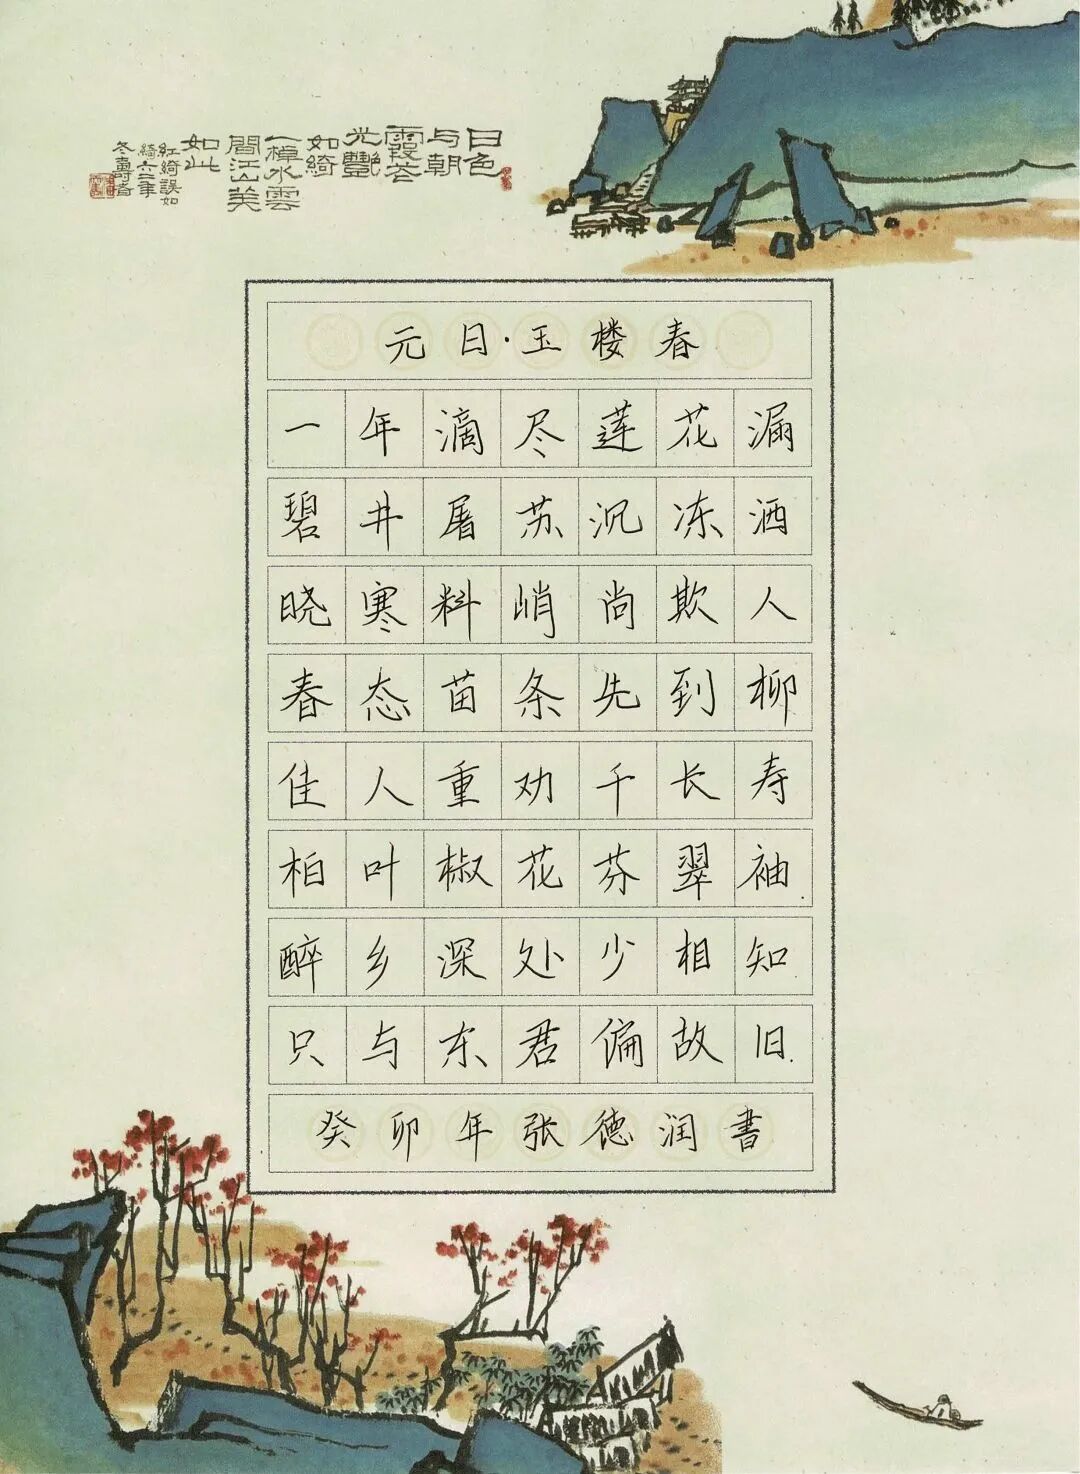 日色
与朝
霞
光艷
如綺
一樟水雲
間江山美
如此
元日·玉楼春
一年滴尽莲花漏
碧井屠苏沉冻酒
晓寒料峭尚欺人
春态苗条先到柳
佳人重劝千长寿
柏叶椒花芬翠袖
醉乡深处少相知
只与东君偏故旧
癸卯年张德润書